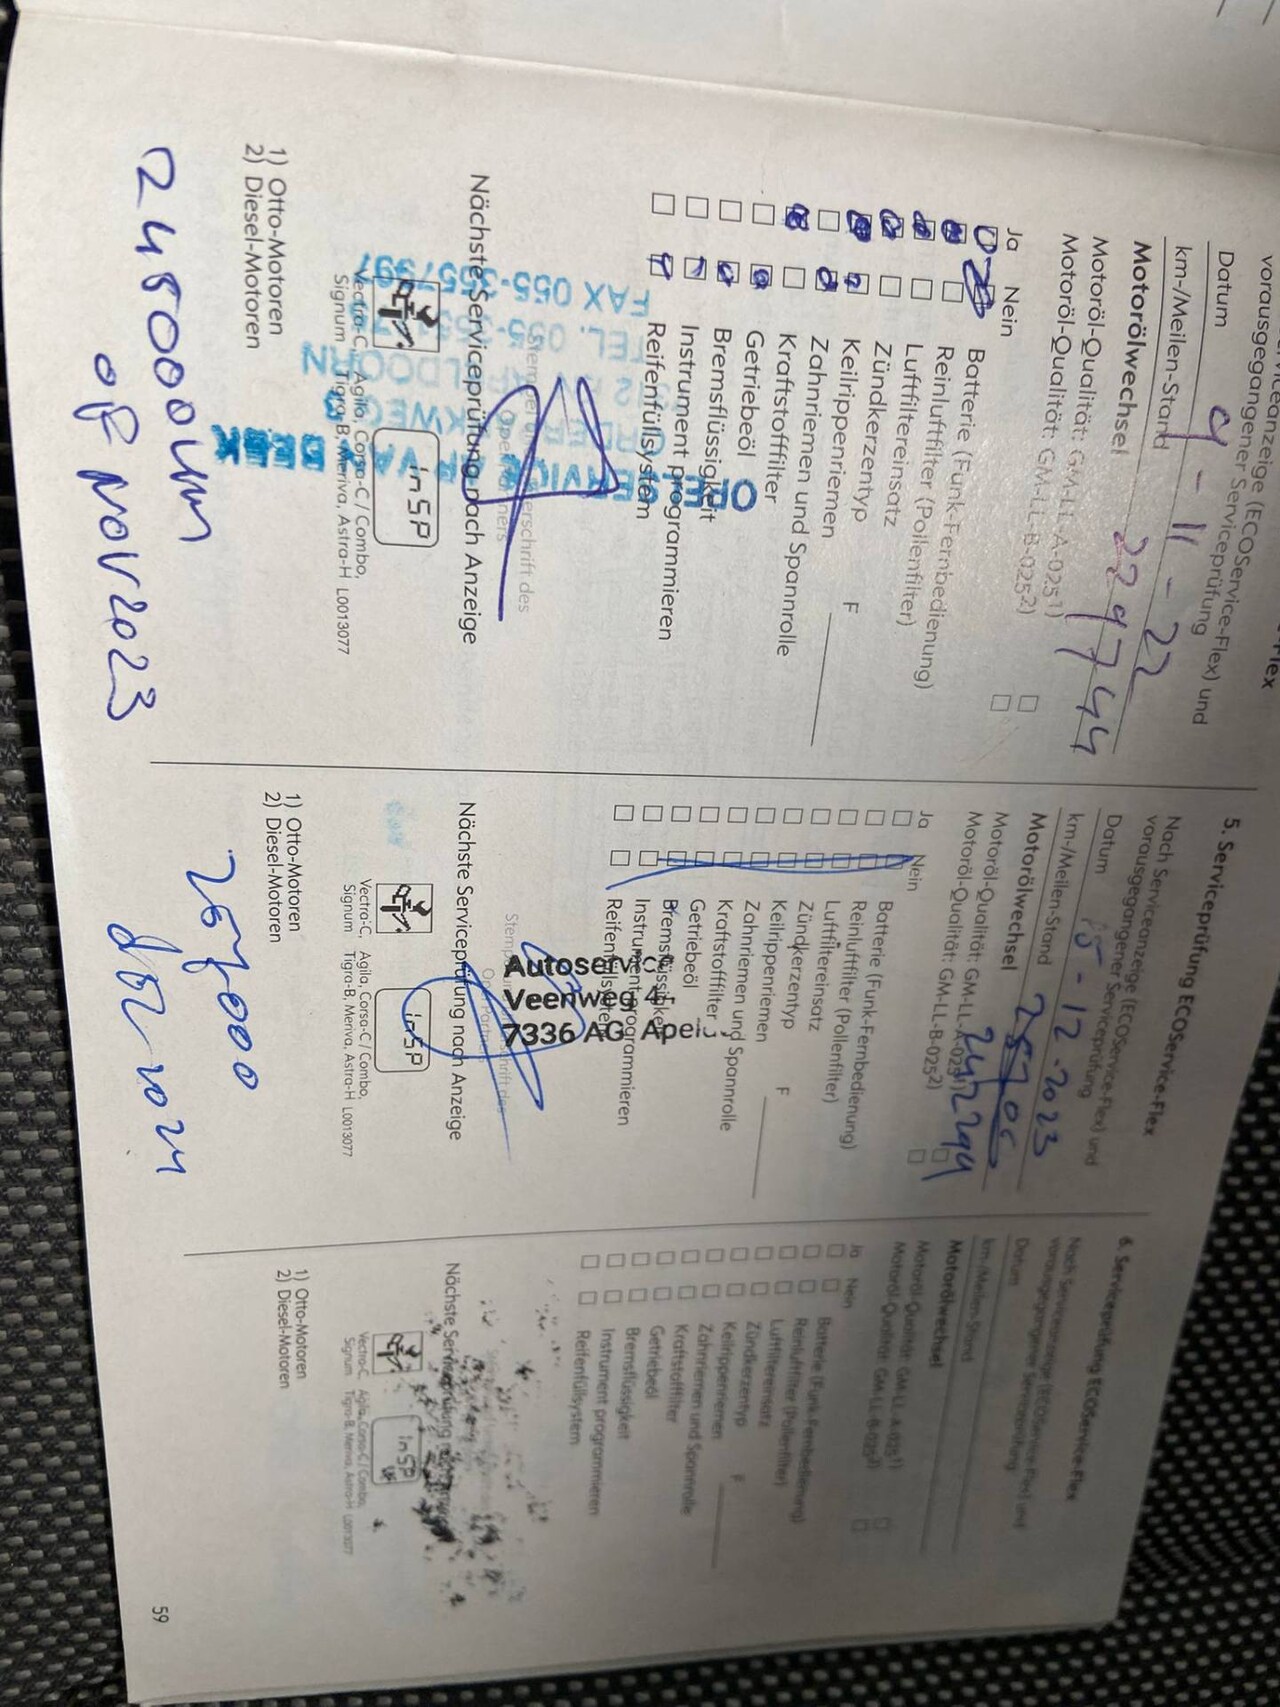 viceanzeige (ECOService-Flex) und
vorausgegangener Serviceprüfung
Datum 9 - 11 - 22
km-/Meilen-Stand 229744
Motorölwechsel
Motoröl-Qualität: GM-LL-A-025 1)
Motoröl-Qualität: GM-LL-B-025 2)
Ja Nein
Batterie (Funk-Fernbedienung)
Reinluftfilter (Pollenfilter)
Luftfiltereinsatz
Zündkerzentyp
Keilrippenriemen F
Zahnriemen und Spannrolle
Kraftstofffilter
Getriebeöl
Bremsflüssigkeit
Instrument programmieren
Reifenfüllsystem
FAX 055-3557397
Nächste Serviceprüfung nach Anzeige
inSP
Vectra-C, Agila, Corsa-C / Combo,
Signum Tigra-B, Meriva, Astra-H L0013077
1) Otto-Motoren
2) Diesel-Motoren
245000km
of Nov 2023
5. Serviceprüfung ECOService-Flex
Nach Serviceanzeige (ECOService-Flex) und
vorausgegangener Serviceprüfung
Datum 15-12-2023
km-/Meilen-Stand
Motorölwechsel
242294
Motoröl-Qualität: GM-LL-A-025 1)
Motoröl-Qualität: GM-LL-B-025 2)
Ja Nein
Batterie (Funk-Fernbedienung)
Reinluftfilter (Pollenfilter)
Luftfiltereinsatz
Zündkerzentyp
Keilrippenriemen F
Zahnriemen und Spannrolle
Kraftstofffilter
Getriebeöl
Bremsflüssigkeit
Instrument programmieren
Reifenfüllsystem
Veenweg
7336 AG
Nächste Serviceprüfung nach Anzeige
inSP
Vectra-C, Agila, Corsa-C / Combo,
Signum Tigra-B, Meriva, Astra-H L0013077
1) Otto-Motoren
2) Diesel-Motoren
257000
2024
6. Serviceprüfung ECOService-Flex
Nach Serviceanzeige (ECOService-Flex) und
vorausgegangener Serviceprüfung
Datum
km-/Meilen-Stand
Motorölwechsel
Motoröl-Qualität: GM-LL-A-025 1)
Motoröl-Qualität: GM-LL-B-025 2)
Ja Nein
Batterie (Funk-Fernbedienung)
Reinluftfilter (Pollenfilter)
Luftfiltereinsatz
Zündkerzentyp
Keilrippenriemen F
Zahnriemen und Spannrolle
Kraftstofffilter
Getriebeöl
Bremsflüssigkeit
Instrument programmieren
Reifenfüllsystem
Nächste Serviceprüfung
inSP
Vectra-C, Agila, Corsa-C / Combo,
Signum Tigra-B, Meriva, Astra-H L0013077
1) Otto-Motoren
2) Diesel-Motoren
59